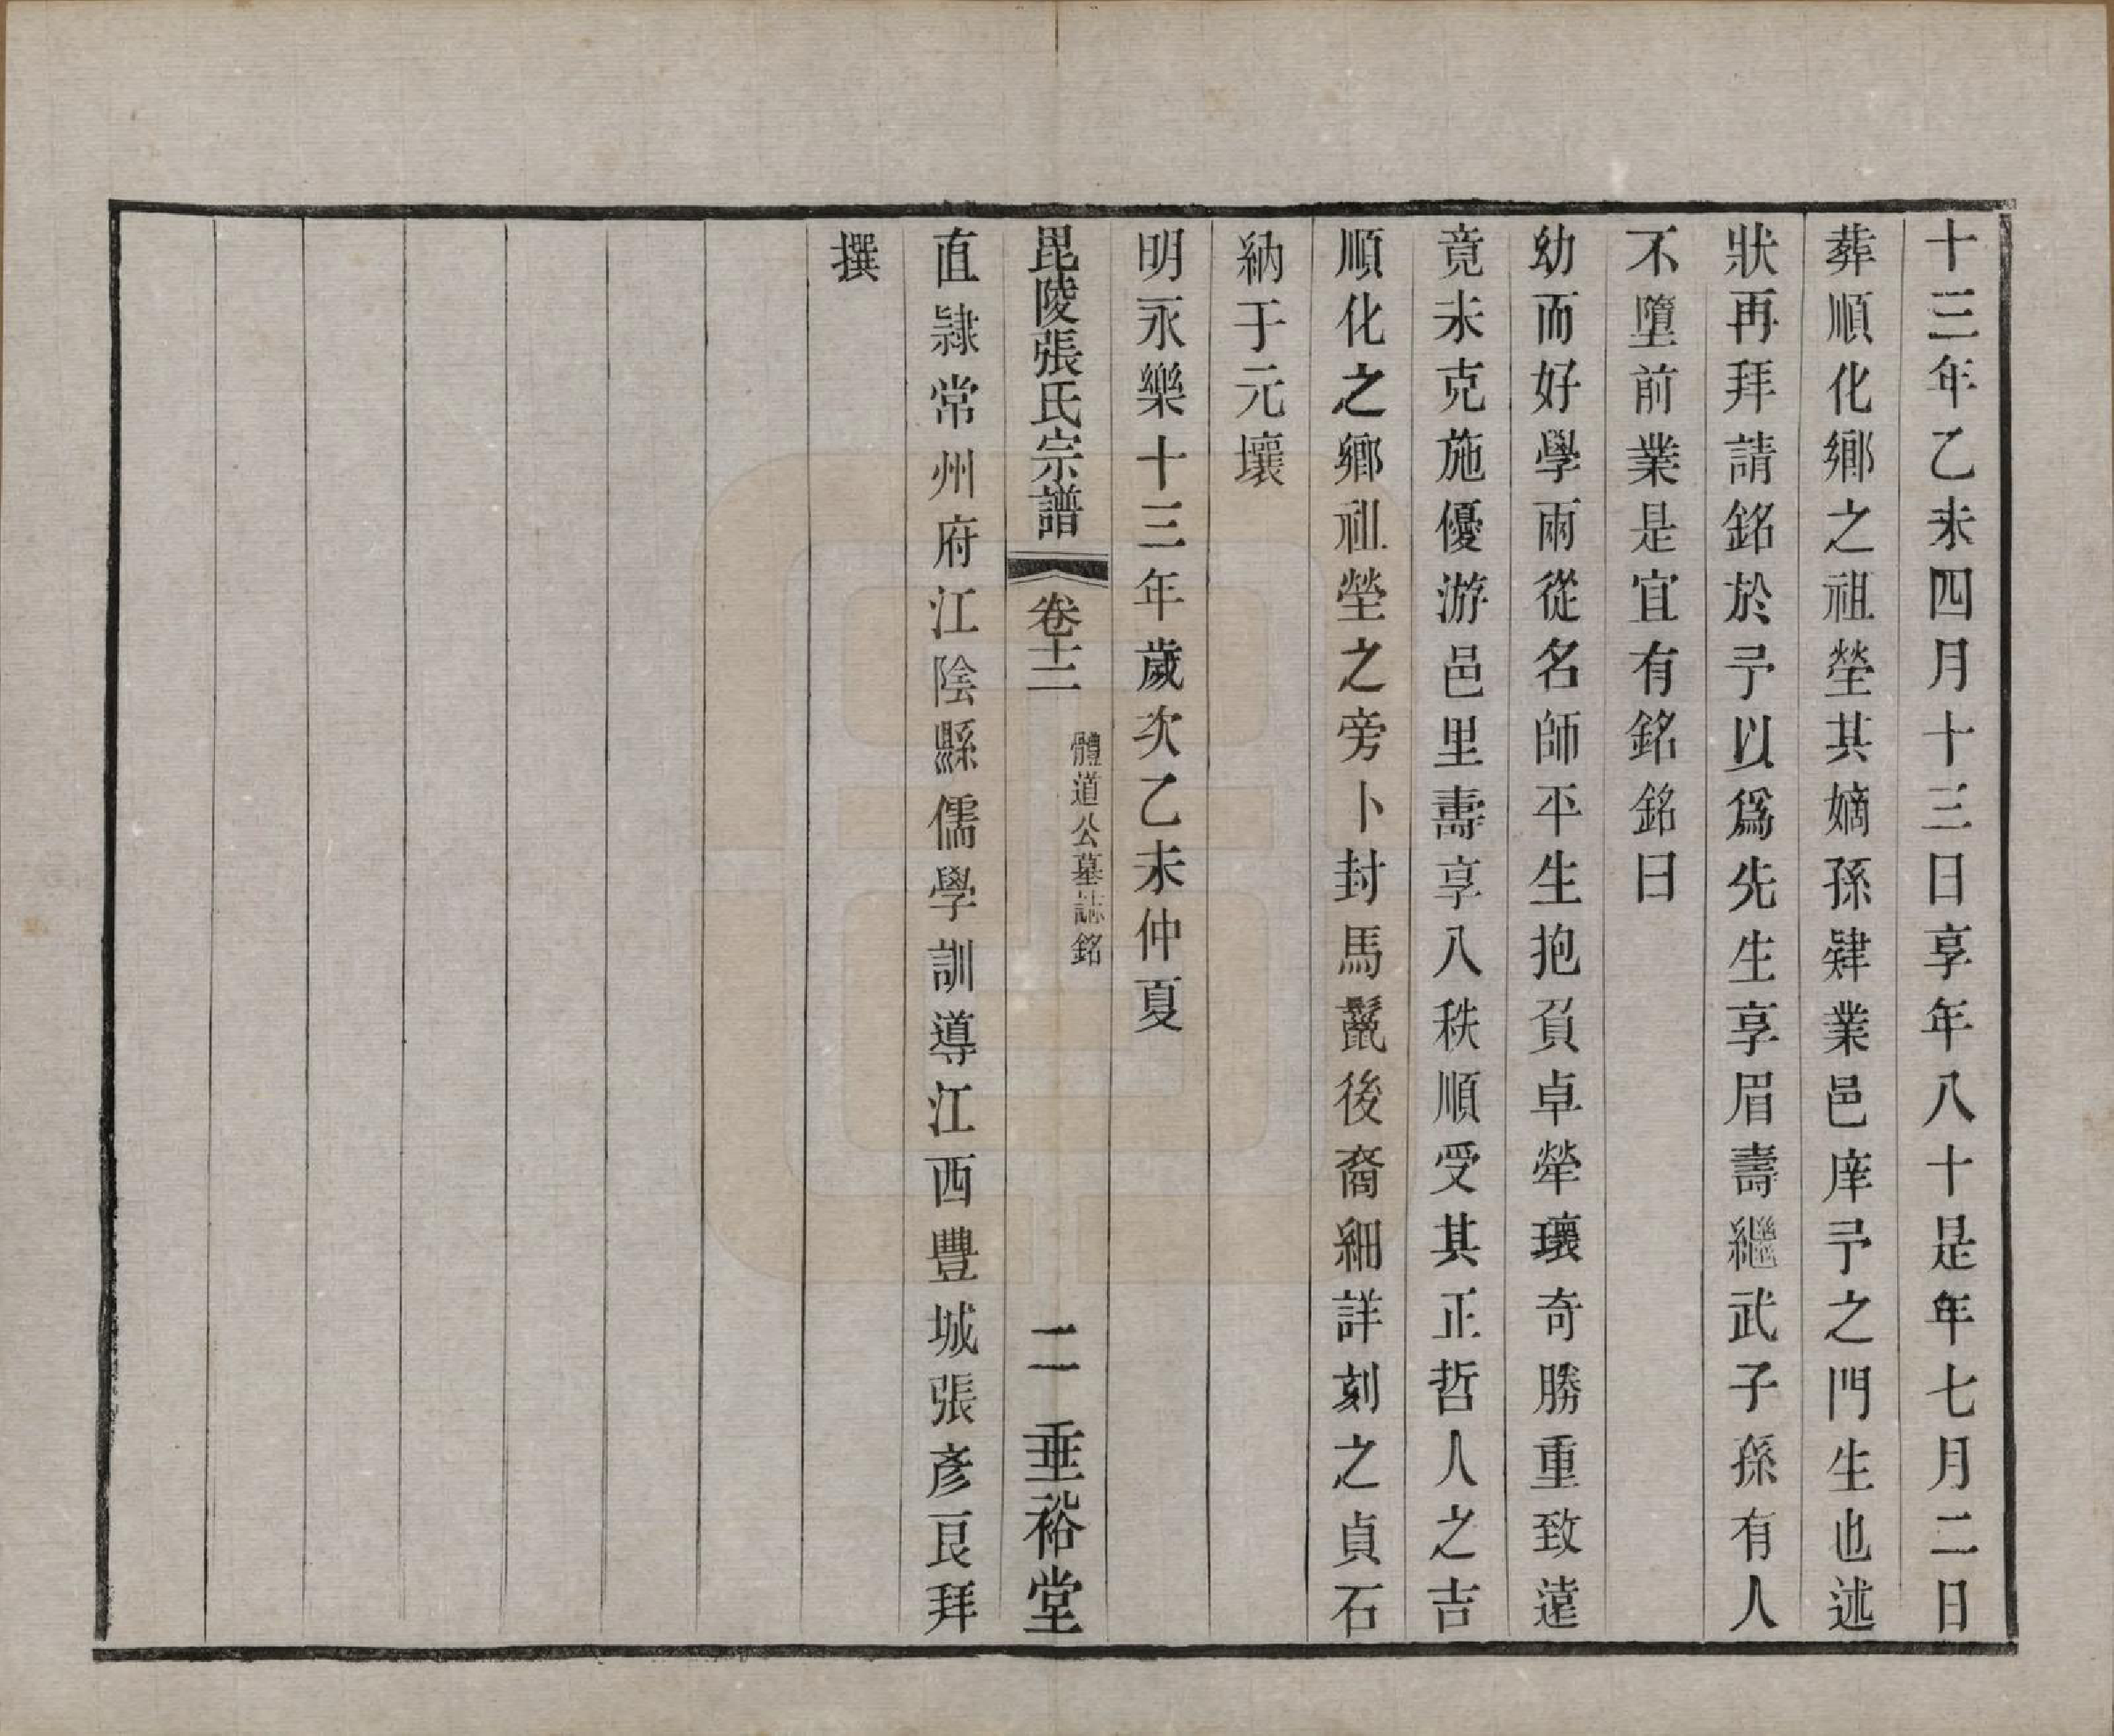 十三年乙未四月十三日享年八十是年七月二日
葬順化鄉之祖塋其嫡孫肄業邑庠予之門生也述
狀再拜請銘於予以爲先生享眉壽繼武子孫有人
不墮前業是宜有銘銘曰
幼而好學兩從名師平生抱負卓犖瓌奇勝重致遠
竟未克施優游邑里壽享八秩順受其正哲人之吉
順化之鄉祖塋之旁卜封馬鬣後裔細詳刻之貞石
納于元壤
明永樂十三年歲次乙未仲夏
毘陵張氏宗譜 卷十二 體道公墓誌銘 二 垂裕堂
直隷常州府江陰縣儒學訓導江西豐城張彥良拜
撰